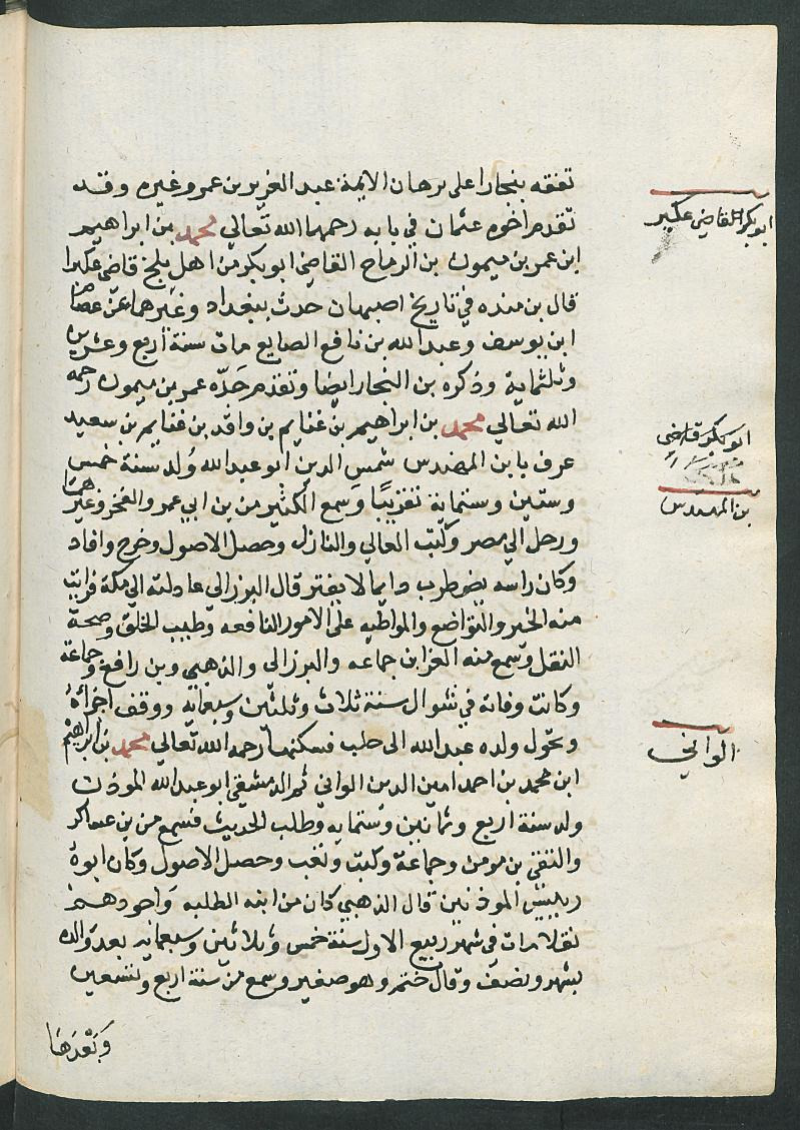 تفقه ببخارا على برهان الايمة عبد العزيز بن عمر وغيره وقد
تقدم اخوه عثمان في بابه رحمهما الله تعالي محمد بن ابراهيم
ابن عمر بن ميمون بن الرماح القاضي ابو بكر من اهل بلخ قاضي عكبرا
قال بن منده في تاريخ اصبهان حدث ببغداد وغيرها عن عصام
ابن يوسف وعبد الله بن نافع الصايع مات سنة أربع وعشرين
وثلثماية وذكره بن النجار ايضا وتقدم جده عمر بن ميمون رحمه
الله تعالي محمد بن ابراهيم بن غنايم بن وافد بن غنايم بن سعيد
عرف بابن المهندس شمس الدين ابو عبد الله ولد سنة خمس
وستين وستماية تقريبًا وسمع الكثير من بن ابي عمر والفخر وغيرهما
ورحل الي مصر وكتب العالي والنازل وحصل الاصول وخرج وافاد
وكان راسه يضطرب دايما لا يفتر قال البرزالي عادلته الي مكة فرايت
منه الخير والتواضع والمواظبه على الامور النافعه وطيب الخلق وصحة
النقل وسمع منه العز ابن جماعه والبرزالى والذهبي وبن رافع وجماعة
وكانت وفاته في شوال سنة ثلاث وثلثين وسبعمايه ووقف اجزاءه
وتحول ولده عبد الله الى حلب فسكنها رحمه الله تعالي محمد بن ابراهيم
ابن محمد بن احمد امين الدين الواني ثم الدمشقي ابو عبد الله الموذن
ولد سنة اربع وثمانين وستمايه وطلب الحديث فسمع من بن عساكر
والتقي بن مومن وجماعة وكتب وتعب وحصل الاصول وكان ابوه
رييس الموذنين قال الذهبي كان من انبه الطلبه واجودهم
نقلا مات في شهر ربيع الاول سنة خمس وثلاثين وسبعمايه بعد والده
بشهر ونصف وقال ختم وهو صغير وسمع من سنة اربع وتسعين
وبعدها
ابو بكر القاضي عكبر
ابو بكر قاضي
بن المهندس
الواني